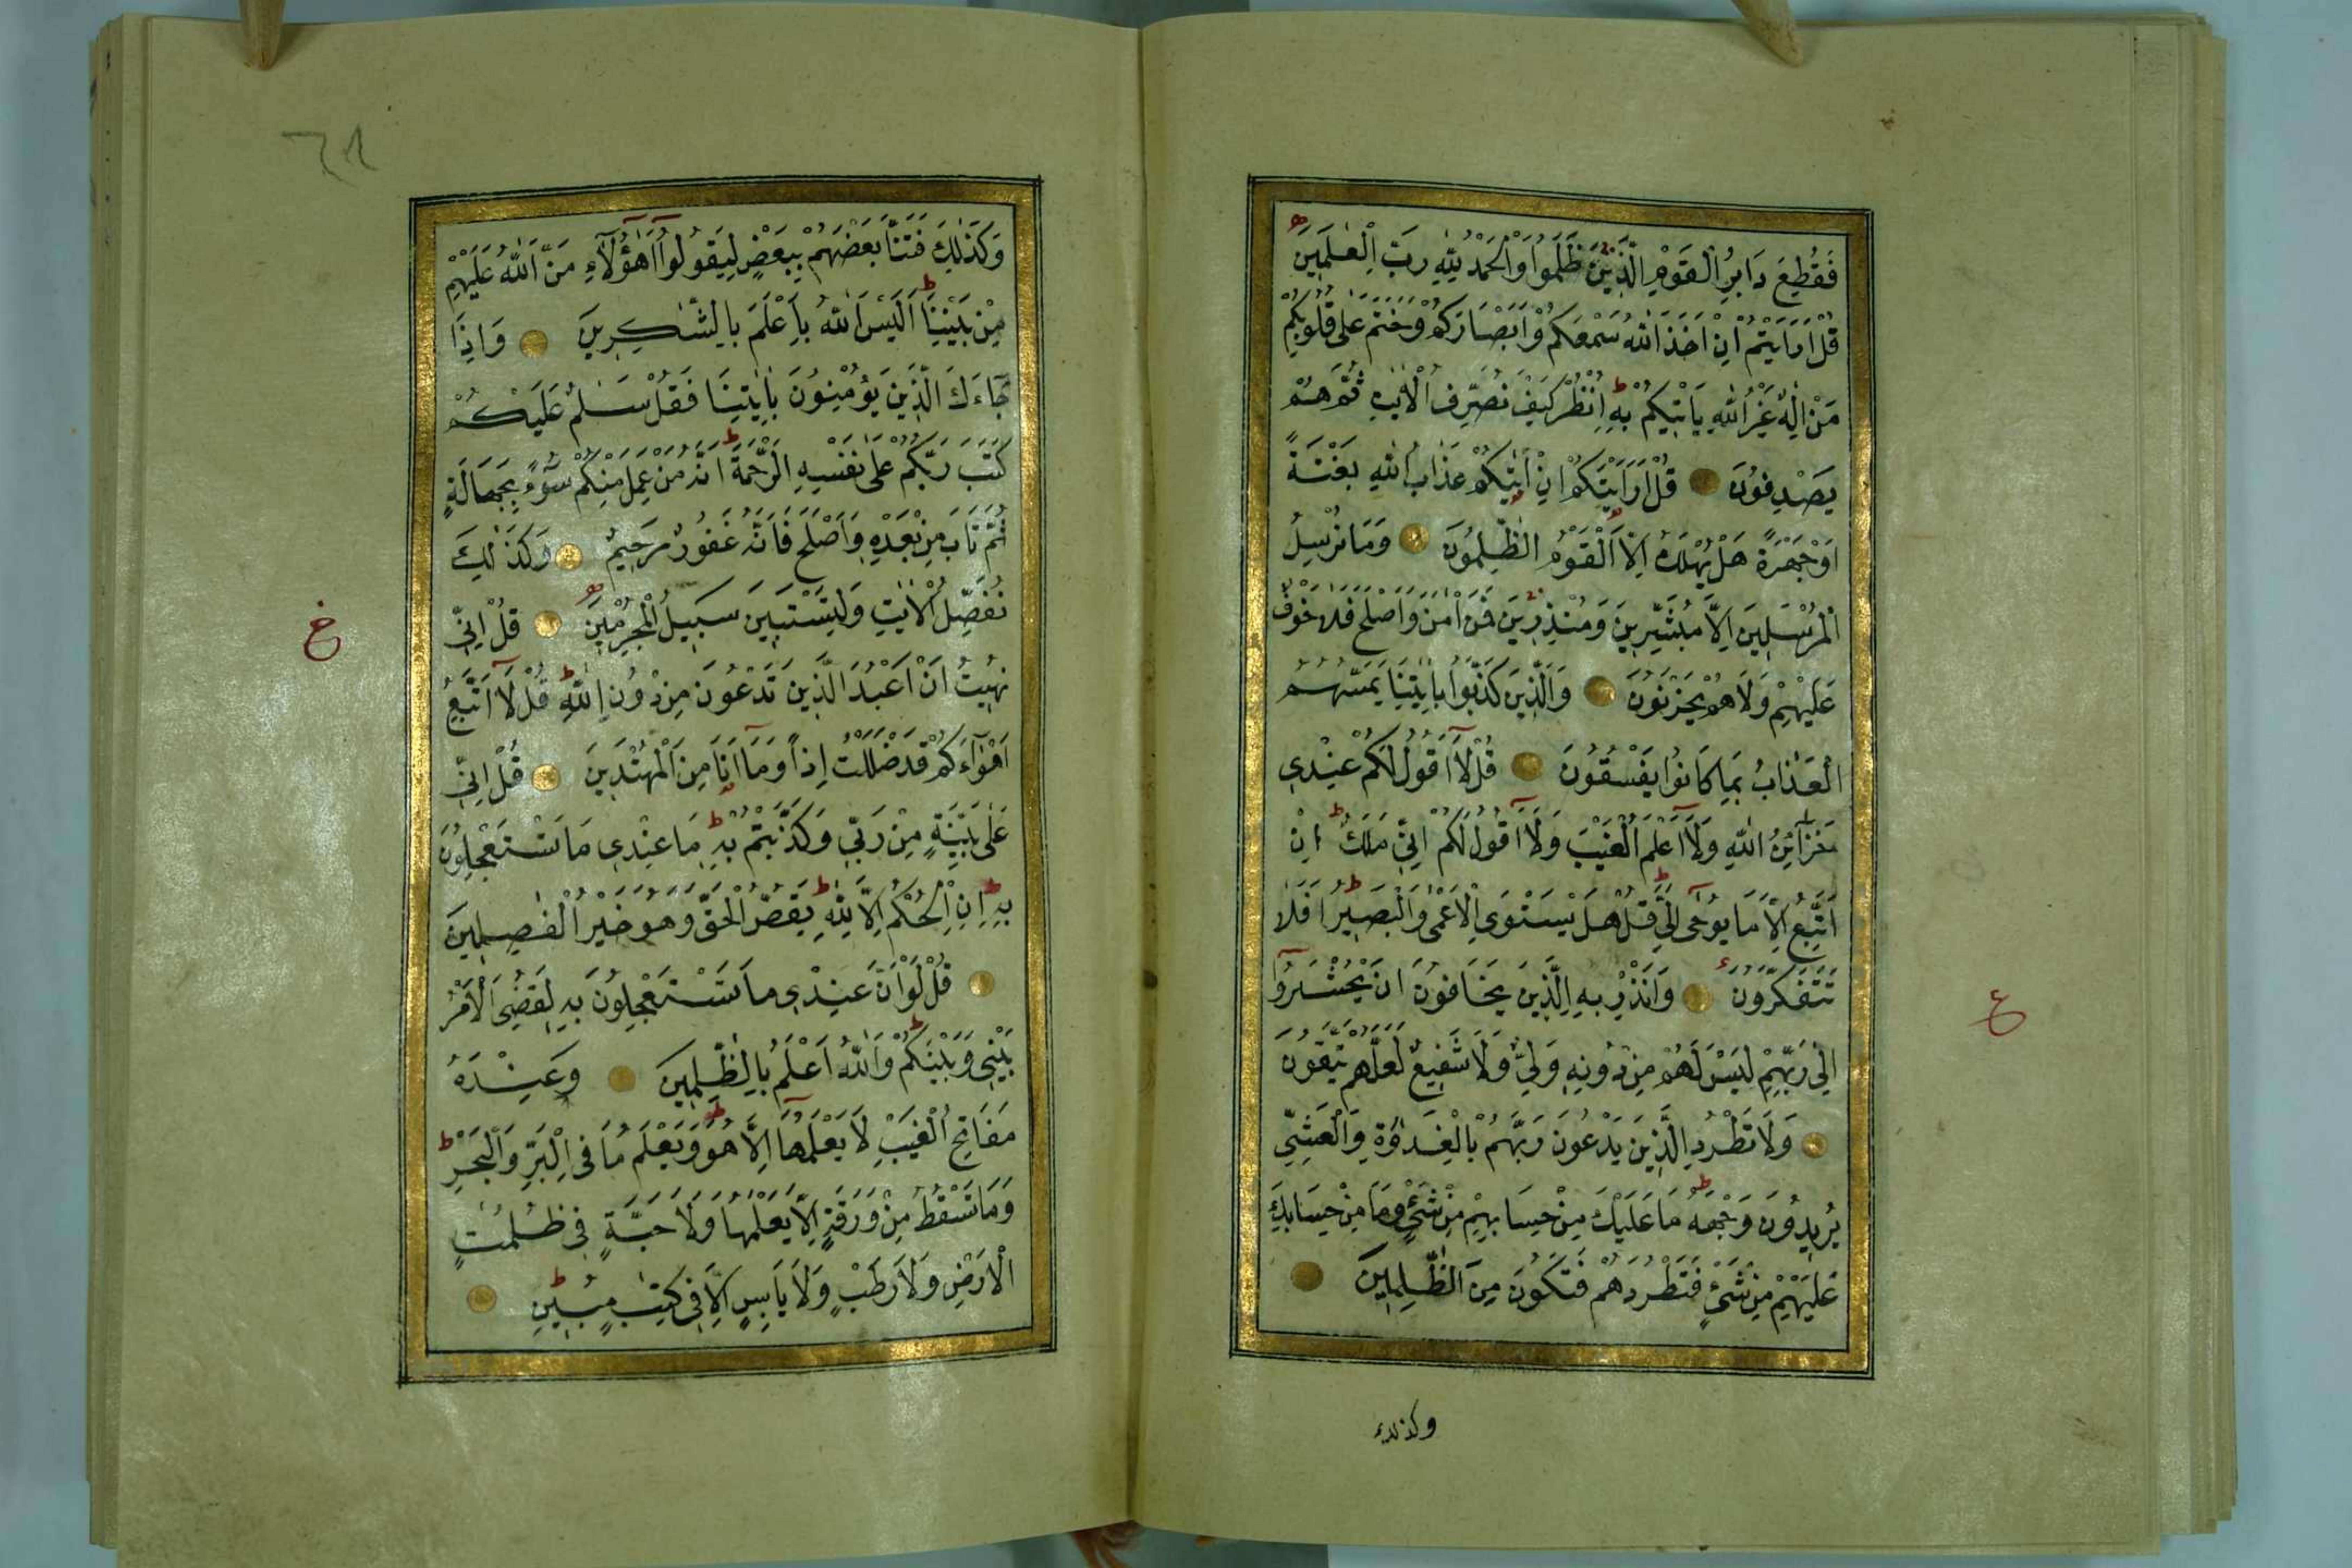 فَقُطِعَ دَابِرُ الْقَوْمِ الَّذِينَ ظَلَمُوا وَالْحَمْدُ لِلّٰهِ رَبِّ الْعٰلَمِينَ
قُلْ اَرَاَيْتُمْ اِنْ اَخَذَ اللّٰهُ سَمْعَكُمْ وَاَبْصَارَكُمْ وَخَتَمَ عَلٰى قُلُوبِكُمْ
مَنْ اِلٰهٌ غَيْرُ اللّٰهِ يَاْتِيكُمْ بِهِ اُنْظُرْ كَيْفَ نُصَرِّفُ الْاٰيٰتِ ثُمَّ هُمْ
يَصْدِفُونَ قُلْ اَرَاَيْتَكُمْ اِنْ اَتٰيكُمْ عَذَابُ اللّٰهِ بَغْتَةً
اَوْ جَهْرَةً هَلْ يُهْلَكُ اِلَّا الْقَوْمُ الظّٰلِمُونَ وَمَا نُرْسِلُ
الْمُرْسَلِينَ اِلَّا مُبَشِّرِينَ وَمُنْذِرِينَ فَمَنْ اٰمَنَ وَاَصْلَحَ فَلَا خَوْفٌ
عَلَيْهِمْ وَلَا هُمْ يَحْزَنُونَ وَالَّذِينَ كَذَّبُوا بِاٰيٰتِنَا يَمَسُّهُمُ
الْعَذَابُ بِمَا كَانُوا يَفْسُقُونَ قُلْ لَا اَقُولُ لَكُمْ عِنْدِي
خَزَآئِنُ اللّٰهِ وَلَا اَعْلَمُ الْغَيْبَ وَلَا اَقُولُ لَكُمْ اِنِّي مَلَكٌ اِنْ
اَتَّبِعُ اِلَّا مَا يُوحٰى اِلَيَّ قُلْ هَلْ يَسْتَوِي الْاَعْمٰى وَالْبَصِيرُ اَفَلَا
تَتَفَكَّرُونَ وَاَنْذِرْ بِهِ الَّذِينَ يَخَافُونَ اَنْ يُحْشَرُوا
ع
اِلٰى رَبِّهِمْ لَيْسَ لَهُمْ مِنْ دُونِهِ وَلِيٌّ وَلَا شَفِيعٌ لَعَلَّهُمْ يَتَّقُونَ
وَلَا تَطْرُدِ الَّذِينَ يَدْعُونَ رَبَّهُمْ بِالْغَدٰوةِ وَالْعَشِيِّ
يُرِيدُونَ وَجْهَهُ مَا عَلَيْكَ مِنْ حِسَابِهِمْ مِنْ شَيْءٍ وَمَا مِنْ حِسَابِكَ
عَلَيْهِمْ مِنْ شَيْءٍ فَتَطْرُدَهُمْ فَتَكُونَ مِنَ الظّٰلِمِينَ
وكذلك
وَكَذٰلِكَ فَتَنَّا بَعْضَهُمْ بِبَعْضٍ لِيَقُولُوا اَهٰٓؤُلَآءِ مَنَّ اللّٰهُ عَلَيْهِمْ
مِنْ بَيْنِنَا اَلَيْسَ اللّٰهُ بِاَعْلَمَ بِالشّٰكِرِينَ وَاِذَا
جَآءَكَ الَّذِينَ يُؤْمِنُونَ بِاٰيٰتِنَا فَقُلْ سَلٰمٌ عَلَيْكُمْ
كَتَبَ رَبُّكُمْ عَلٰى نَفْسِهِ الرَّحْمَةَ اَنَّهُ مَنْ عَمِلَ مِنْكُمْ سُوٓءًا بِجَهَالَةٍ
ثُمَّ تَابَ مِنْ بَعْدِهِ وَاَصْلَحَ فَاَنَّهُ غَفُورٌ رَحِيمٌ وَكَذٰلِكَ
نُفَصِّلُ الْاٰيٰتِ وَلِتَسْتَبِينَ سَبِيلُ الْمُجْرِمِينَ قُلْ اِنِّي
نُهِيتُ اَنْ اَعْبُدَ الَّذِينَ تَدْعُونَ مِنْ دُونِ اللّٰهِ قُلْ لَا اَتَّبِعُ
اَهْوَآءَكُمْ قَدْ ضَلَلْتُ اِذًا وَمَا اَنَا مِنَ الْمُهْتَدِينَ قُلْ اِنِّي
عَلٰى بَيِّنَةٍ مِنْ رَبِّي وَكَذَّبْتُمْ بِهِ مَا عِنْدِي مَا تَسْتَعْجِلُونَ
بِهِ اِنِ الْحُكْمُ اِلَّا لِلّٰهِ يَقُصُّ الْحَقَّ وَهُوَ خَيْرُ الْفٰصِلِينَ
قُلْ لَوْ اَنَّ عِنْدِي مَا تَسْتَعْجِلُونَ بِهِ لَقُضِيَ الْاَمْرُ
بَيْنِي وَبَيْنَكُمْ وَاللّٰهُ اَعْلَمُ بِالظّٰلِمِينَ وَعِنْدَهُ
مَفَاتِحُ الْغَيْبِ لَا يَعْلَمُهَا اِلَّا هُوَ وَيَعْلَمُ مَا فِي الْبَرِّ وَالْبَحْرِ
وَمَا تَسْقُطُ مِنْ وَرَقَةٍ اِلَّا يَعْلَمُهَا وَلَا حَبَّةٍ فِي ظُلُمٰتِ
الْاَرْضِ وَلَا رَطْبٍ وَلَا يَابِسٍ اِلَّا فِي كِتٰبٍ مُبِينٍ